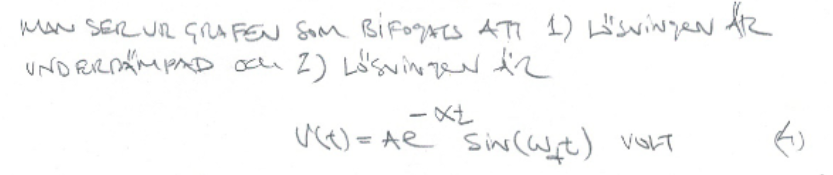 MAN SER UR GRAFEN SOM BIFOGATS ATT 1) LÖSNINGEN ÄR
UNDERDÄMPAD OCH 2) LÖSNINGEN ÄR
V(t) = Ae^{-αt} sin(ω_d t) VOLT (4)